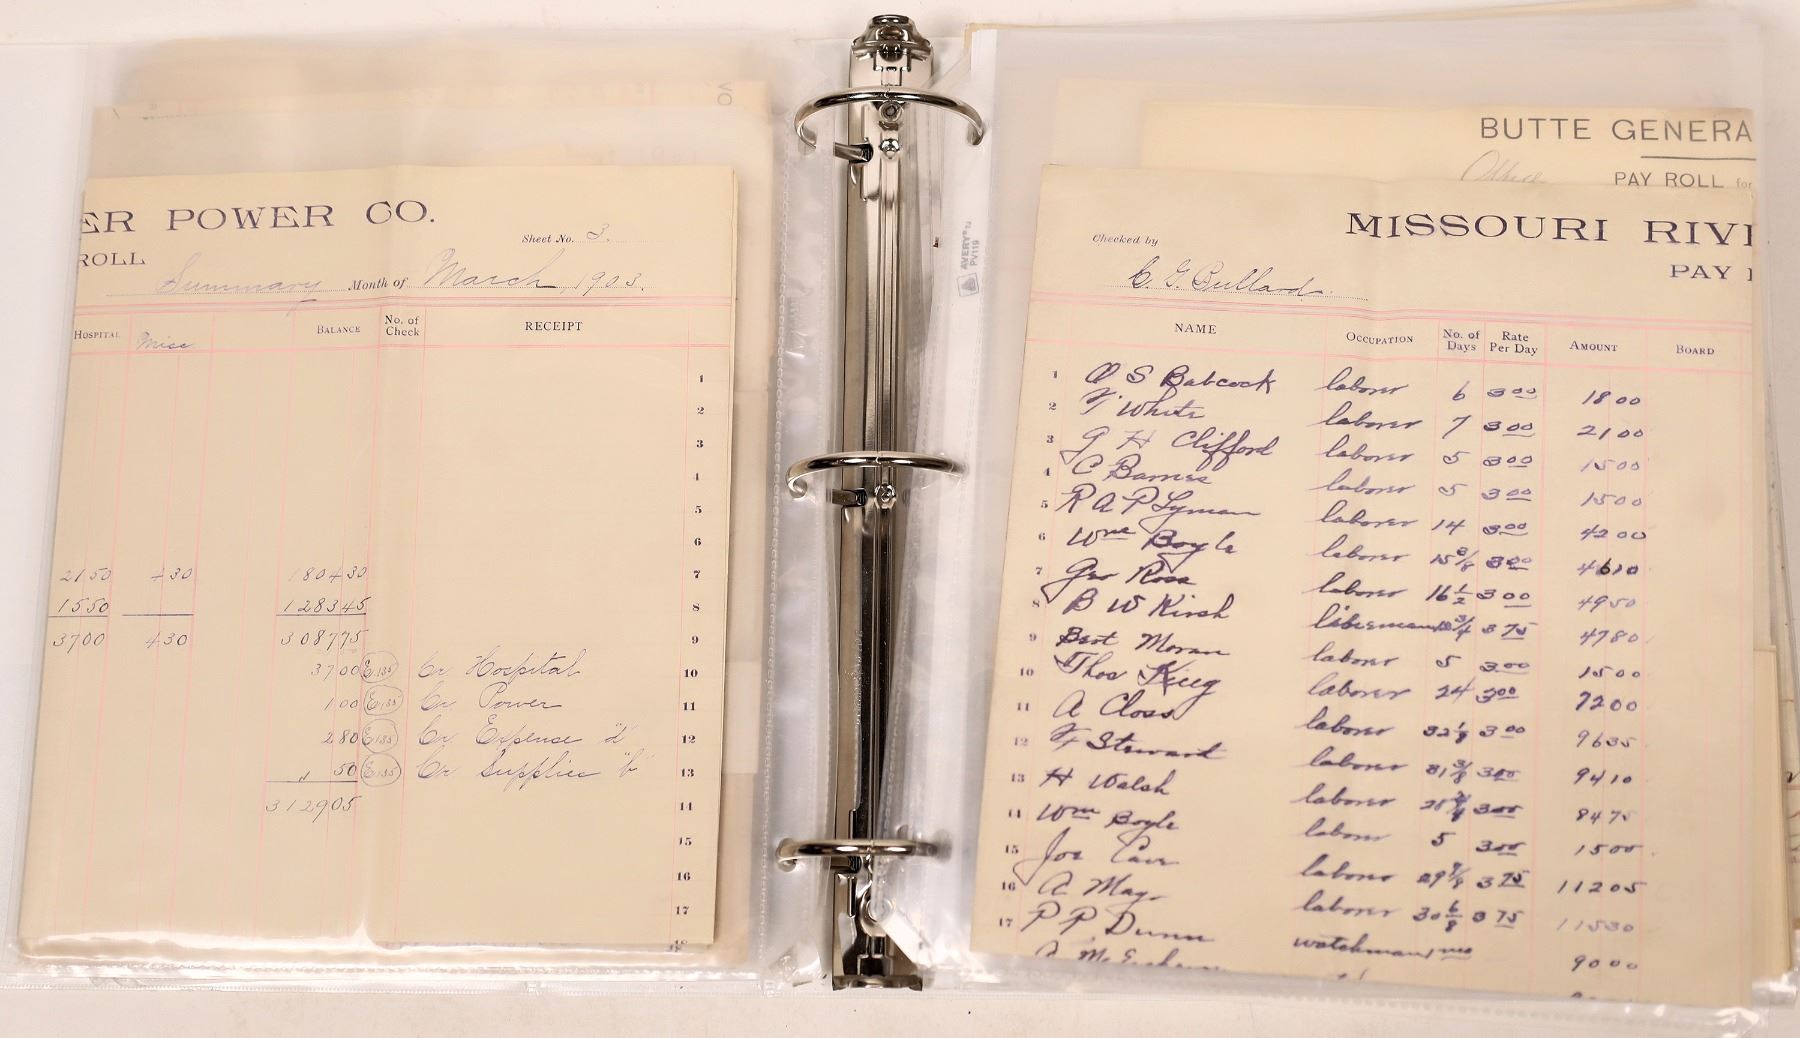 ER POWER CO.
Sheet No. 3.
ROLL
Summary Month of March, 1903.
HOSPITAL Misc BALANCE No. of Check RECEIPT
1
2
3
4
5
6
2150 430 180430 7
1550 128345 8
3700 430 308775 9
3700 E135 Cr Hospital 10
100 E135 Cr. Power 11
280 E135 Cr Expense 12
50 E135 Cr Supplies 13
312905 14
15
16
17
18
AVERY
PV119
BUTTE GENERA
PAY ROLL for
MISSOURI RIVE
Checked by
PAY
C. G. Bullard.
NAME OCCUPATION No. of Days Rate Per Day AMOUNT BOARD
1 O S Babcock laborer 6 3.00 1800
2 F White laborer 7 3.00 2100
3 G H Clifford laborer 5 3.00 1500
4 C Barnes laborer 5 3.00 1500
5 R A P Lyman laborer 14 3.00 4200
6 Wm Boyle laborer 15 3/8 3.00 4610
7 Geo Ross laborer 16 1/2 3.00 4950
8 B W Kirsh 3/4 3 75 4780
9 Bert Moran laborer 5 3.00 1500
10 Thos laborer 24 3.00 7200
11 A Closs laborer 32 1/8 3.00 9635
12 F Stewart laborer 31 3/8 3.00 9410
13 H Walsh laborer 3.00 8475
14 Wm Boyle laborer 5 3.00 1500
15 Joe Cave laborer 29 7/8 3 75 11205
16 A Mayo laborer 30 6/8 3 75 11530
17 P P Dunn watchman 1 mo 9000